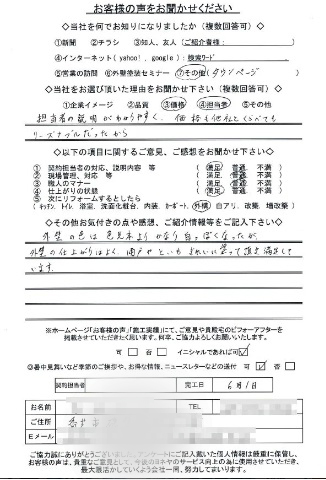 お客様の声をお聞かせください
◇当社を何でお知りになりましたか（複数回答可）◇
①新聞 ②チラシ ③知人、友人（ご紹介者様： ）
④インターネット（yahoo!、google）：検索ワード
⑤営業の訪問 ⑥外壁塗装セミナー ⑦その他（タウンページ）
◇当社をお選び頂いた理由をお聞かせ下さい（複数回答可）◇
①企業イメージ ②品質 ③価格 ④担当者 ⑤その他
担当者の説明がわかりやすく、価格も他社とくらべても
リーズナブルだったから
◇以下の項目に関するご意見、ご感想をお聞かせ下さい◇
① 契約担当者の対応、説明内容 等 （ 満足 普通 不満 ）
② 現場管理、対応 等 （ 満足 普通 不満 ）
③ 職人のマナー （ 満足 普通 不満 ）
④ 仕上がりの状態 （ 満足 普通 不満 ）
⑤ 次にリフォームするとしたら
（キッチン、トイレ、浴室、洗面化粧台、内装、カーポート、外構、白アリ、改築、増改築）
◇その他お気付きの点や感想、ご紹介情報等をご記入下さい◇
外壁の色は色見本よりかなり白っぽくなったが、
外壁の仕上がりはよく、雨戸やといもきれいに塗って頂き満足して
います。
※ホームページ「お客様の声」「施工実績」にて、ご意見や貴殿宅のビフォーアフターを
掲載させていただきたく思います。何卒、ご協力よろしくお願いいたします。
可 □ 否 □ イニシャルであれば可 ☑
③暑中見舞いなど季節のご挨拶や、お得な情報、ニュースレターなどの送付 可 ☑ 否 □
契約担当者 完工日 6月1日
お名前 TEL
ご住所
Eメール
ご協力誠にありがとうございました。アンケートにご記入戴いた個人情報は厳重に保管し、
お客様の声は、貴重なご意見として、今後のヨネヤのサービス向上の為に使用させていただき、
最大限活かしていくよう会社一同、努力してまいります。